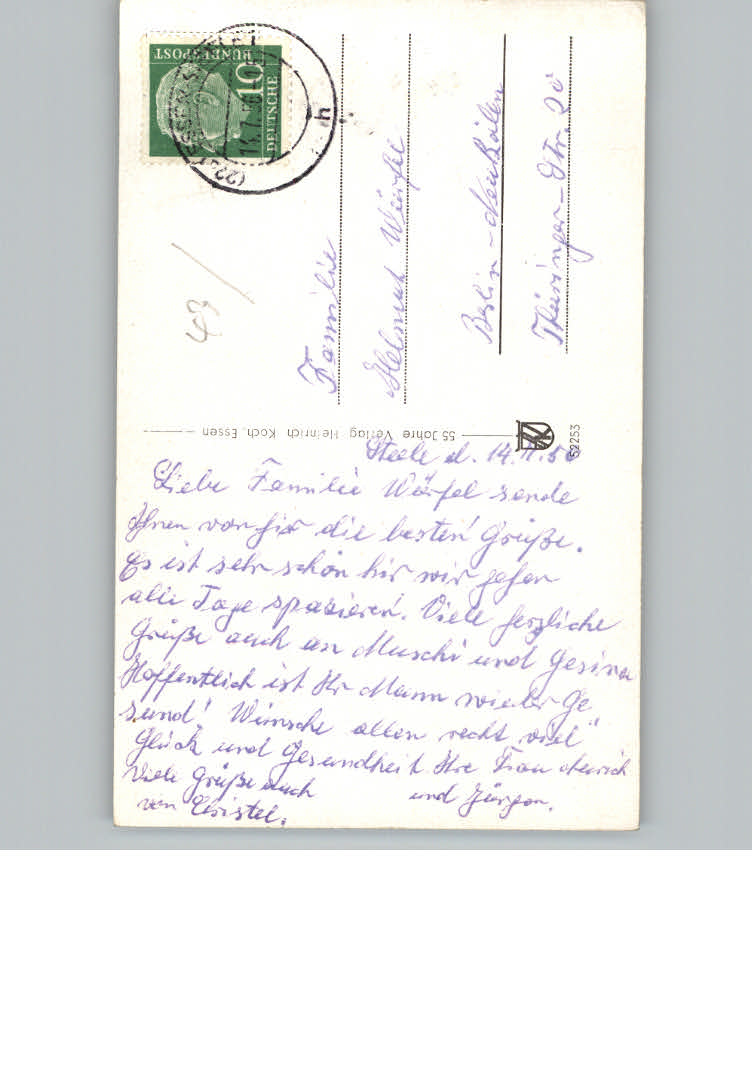 DEUTSCHE
BUNDESPOST
10
h
43
Familie
Helmut Würfel
Berlin-Neukölln
Thüringer-Str. 20
55 Jahre Verlag Heinrich Koch, Essen
52253
Steele d. 14.7.56
Liebe Familie Würfel sende
Ihnen von hir die besten Grüße.
Es ist sehr schön hir wir gehen
alle Tage spazieren. Viele herzliche
Grüße auch an Muschi und Gesina
Hoffentlich ist Ihr Mann wieder Ge
sund! Wünsche allen recht viel
Glück und Gesundheit Ihre Frau
und Jürgen.
Viele Grüße auch
von Christel.